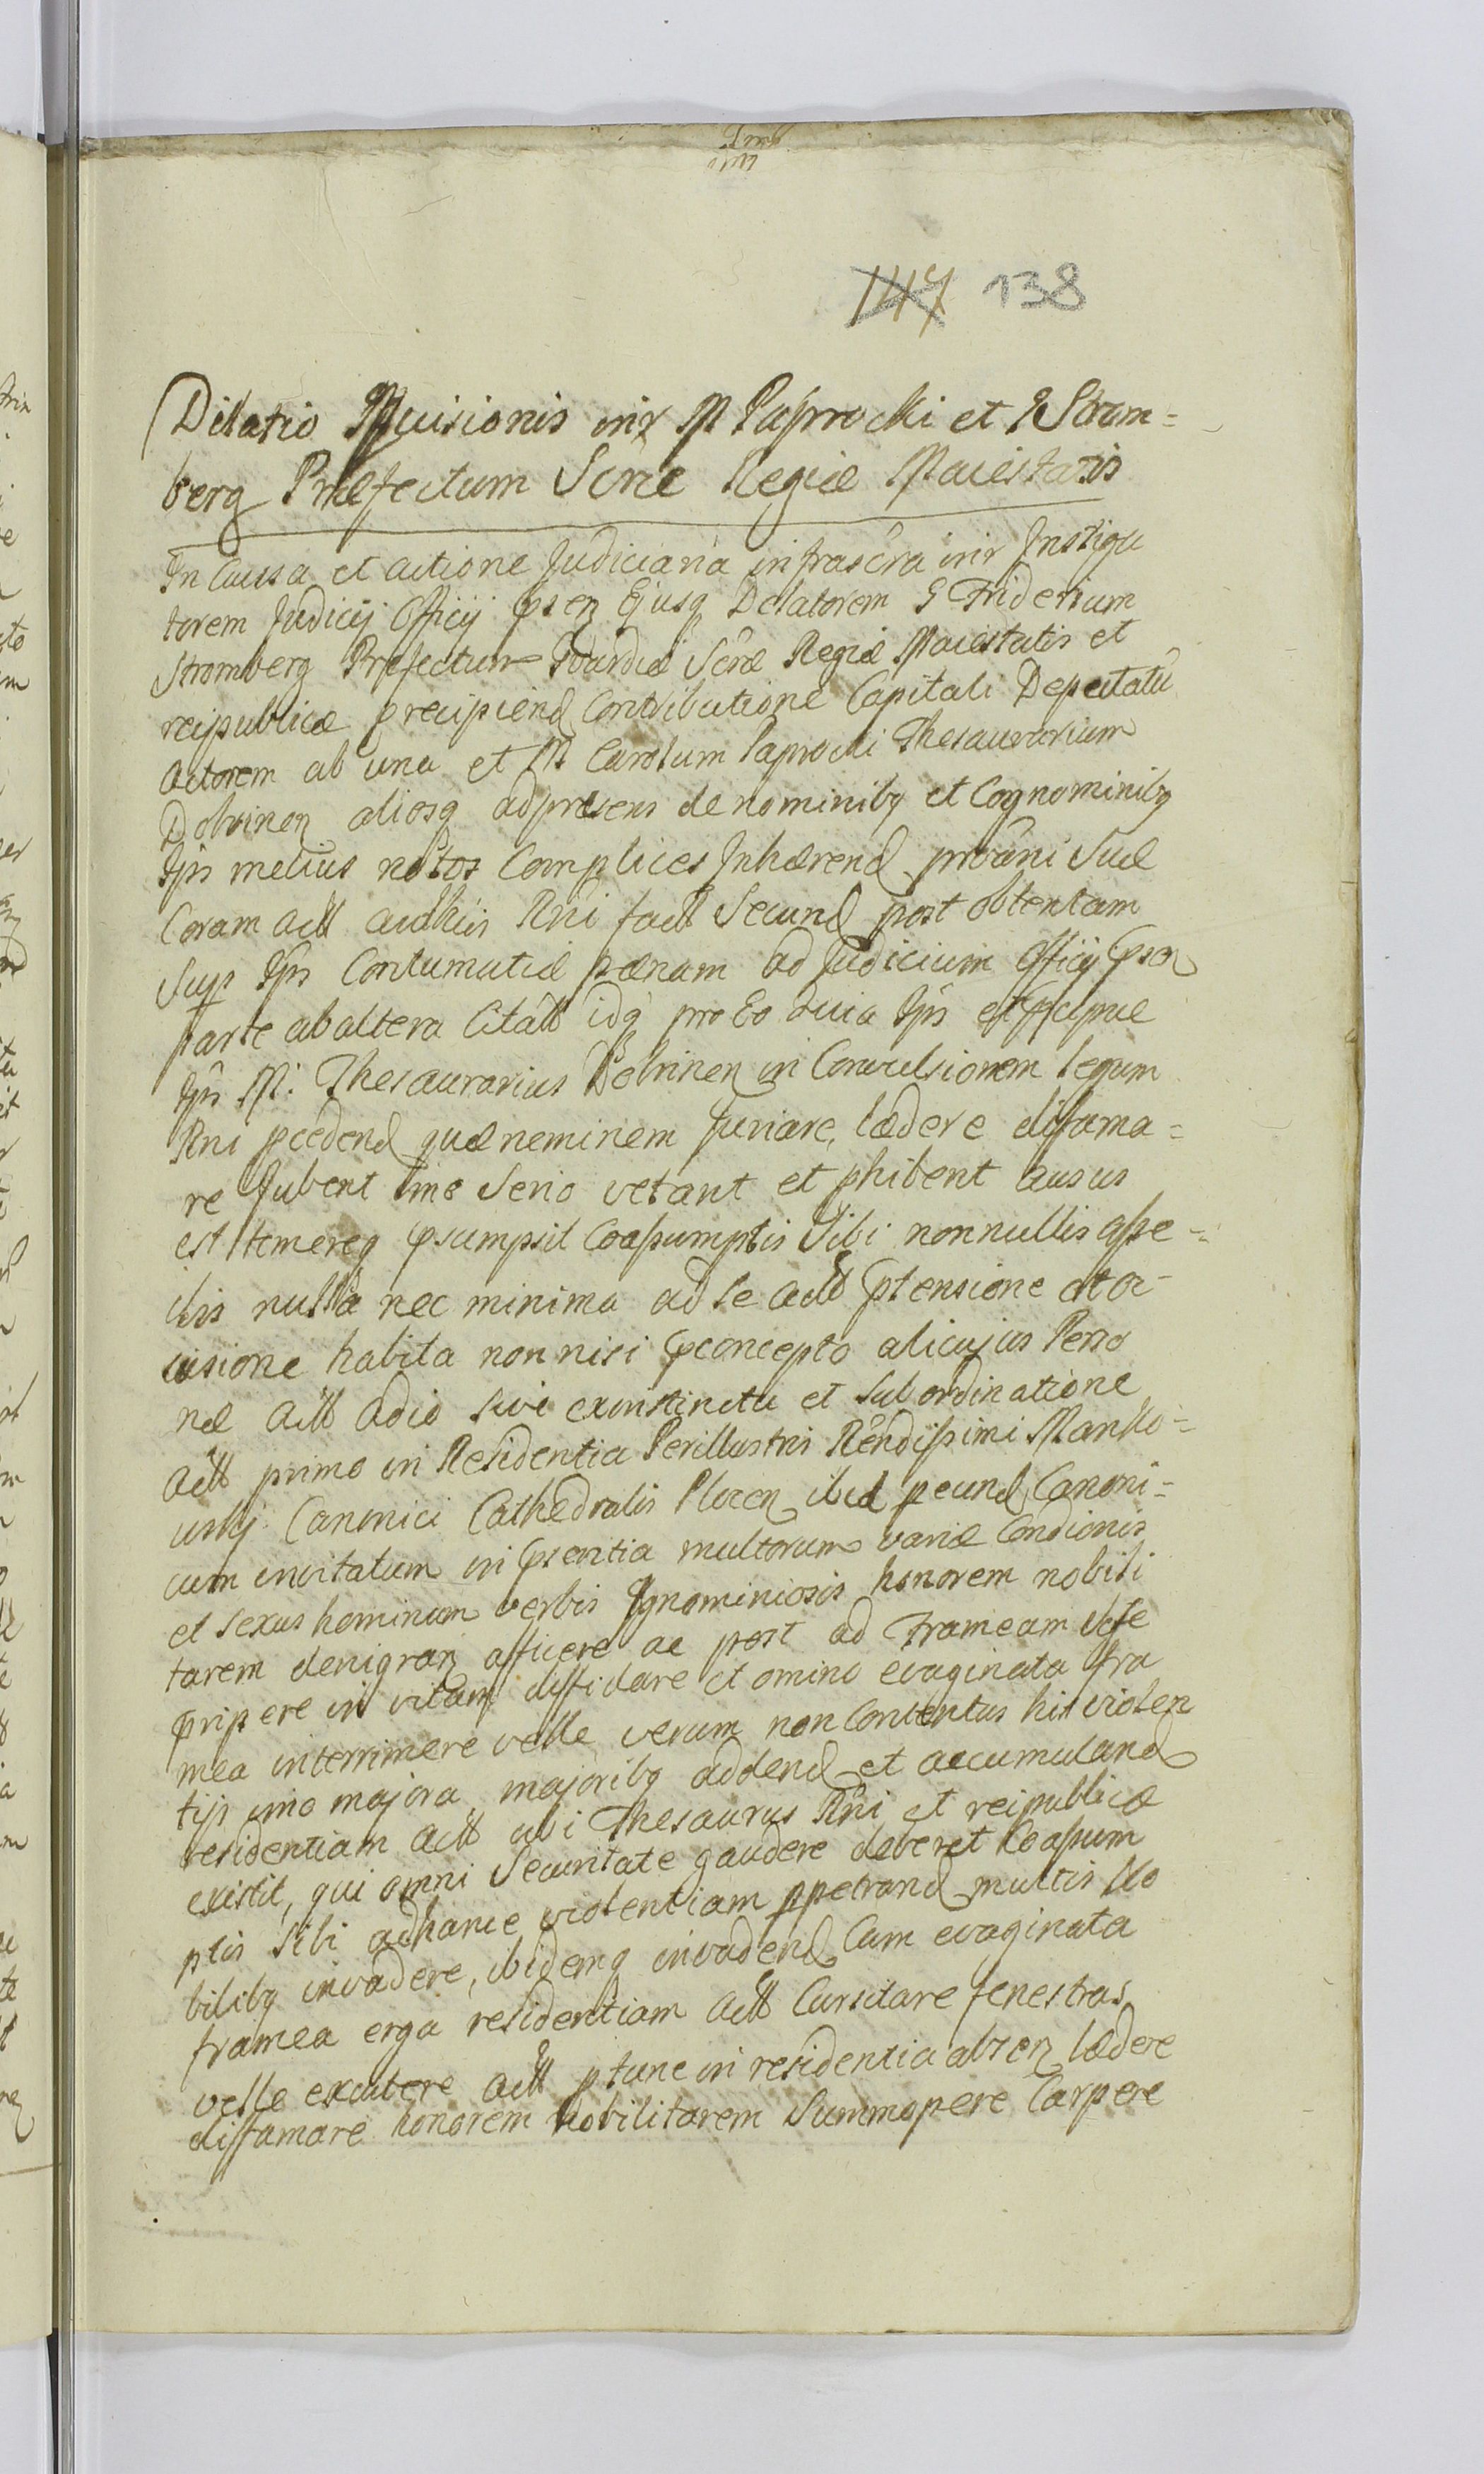 147 138
Dilatio Mcisionis inr M Paprocki et G Strom=
berg Præfectum Scræ Regiæ Maiestatis
In Causa et actione Judiciaria infrascra inr Instiga
torem Judicij Officij psen Ejusq Delatorem G Fridericum
Stromberg Præfectum Gvardiæ Scræ Regiæ Maiestatis et
reipublicæ precipiend Contributione Capitali Deputatu
actorem ab una et M Carolum Paprocki Thesaurarium
Dobrinen aliosq ad præsens de nominibq et Cognominibq
Ipi melius notos Complices Inhærend proâni Suæ
Coram actt authcis Rni fact Secund post obtentam
Sup Ipi Contumatiæ pænam ad Judicium Officij psen
parte ab altera Citatt idq pro Eo quia Ipi et præcipue
Ipê M: Thesaurarius Dobrinen in Convulsionem legum
Rni pcedend quæ neminem Juriare, lædere diffama=
re Jubent imo Serio vetant et phibent ausus
est temereq psumpsit Coassumptis Sibi nonnullis asse=
clis nulla nec minima ad se actt ptensione at oc=
cisione habita non nisi pconcepto alicujus Perso
næ actt odio sive exinstinctu et Subordinatione
actt primo in Residentia Perillustris Rendissimi Manko=
wskj Canonici Cathedralis Plocen ibid peund Canoni=
cum invitatum in psentia multorum variæ Condionis
et sexus hominum verbis Ignominiosis honorem nobili
tarem denigran afficere ac post ad Frameam sese
pripere in vitam diffidare et omino evaginata fra
mea interrimere velle verum non Contentus his violen
tijs imo majora majoribq addend et accumuland
residentiam actt ubi Thesaurus Rni et reipublicæ
existit, qui omni Securitate gaudere deberet Coassum
ptis Sibi adhance violentiam ppetrand multis No
bilibq invadere, ibidemq invadend Cum evaginata
framea erga residentiam actt Cursitare fenestras
velle excutere actt ptunc in residentia absen lædere
diffamare honorem Nobilitarem Summopere Carpere